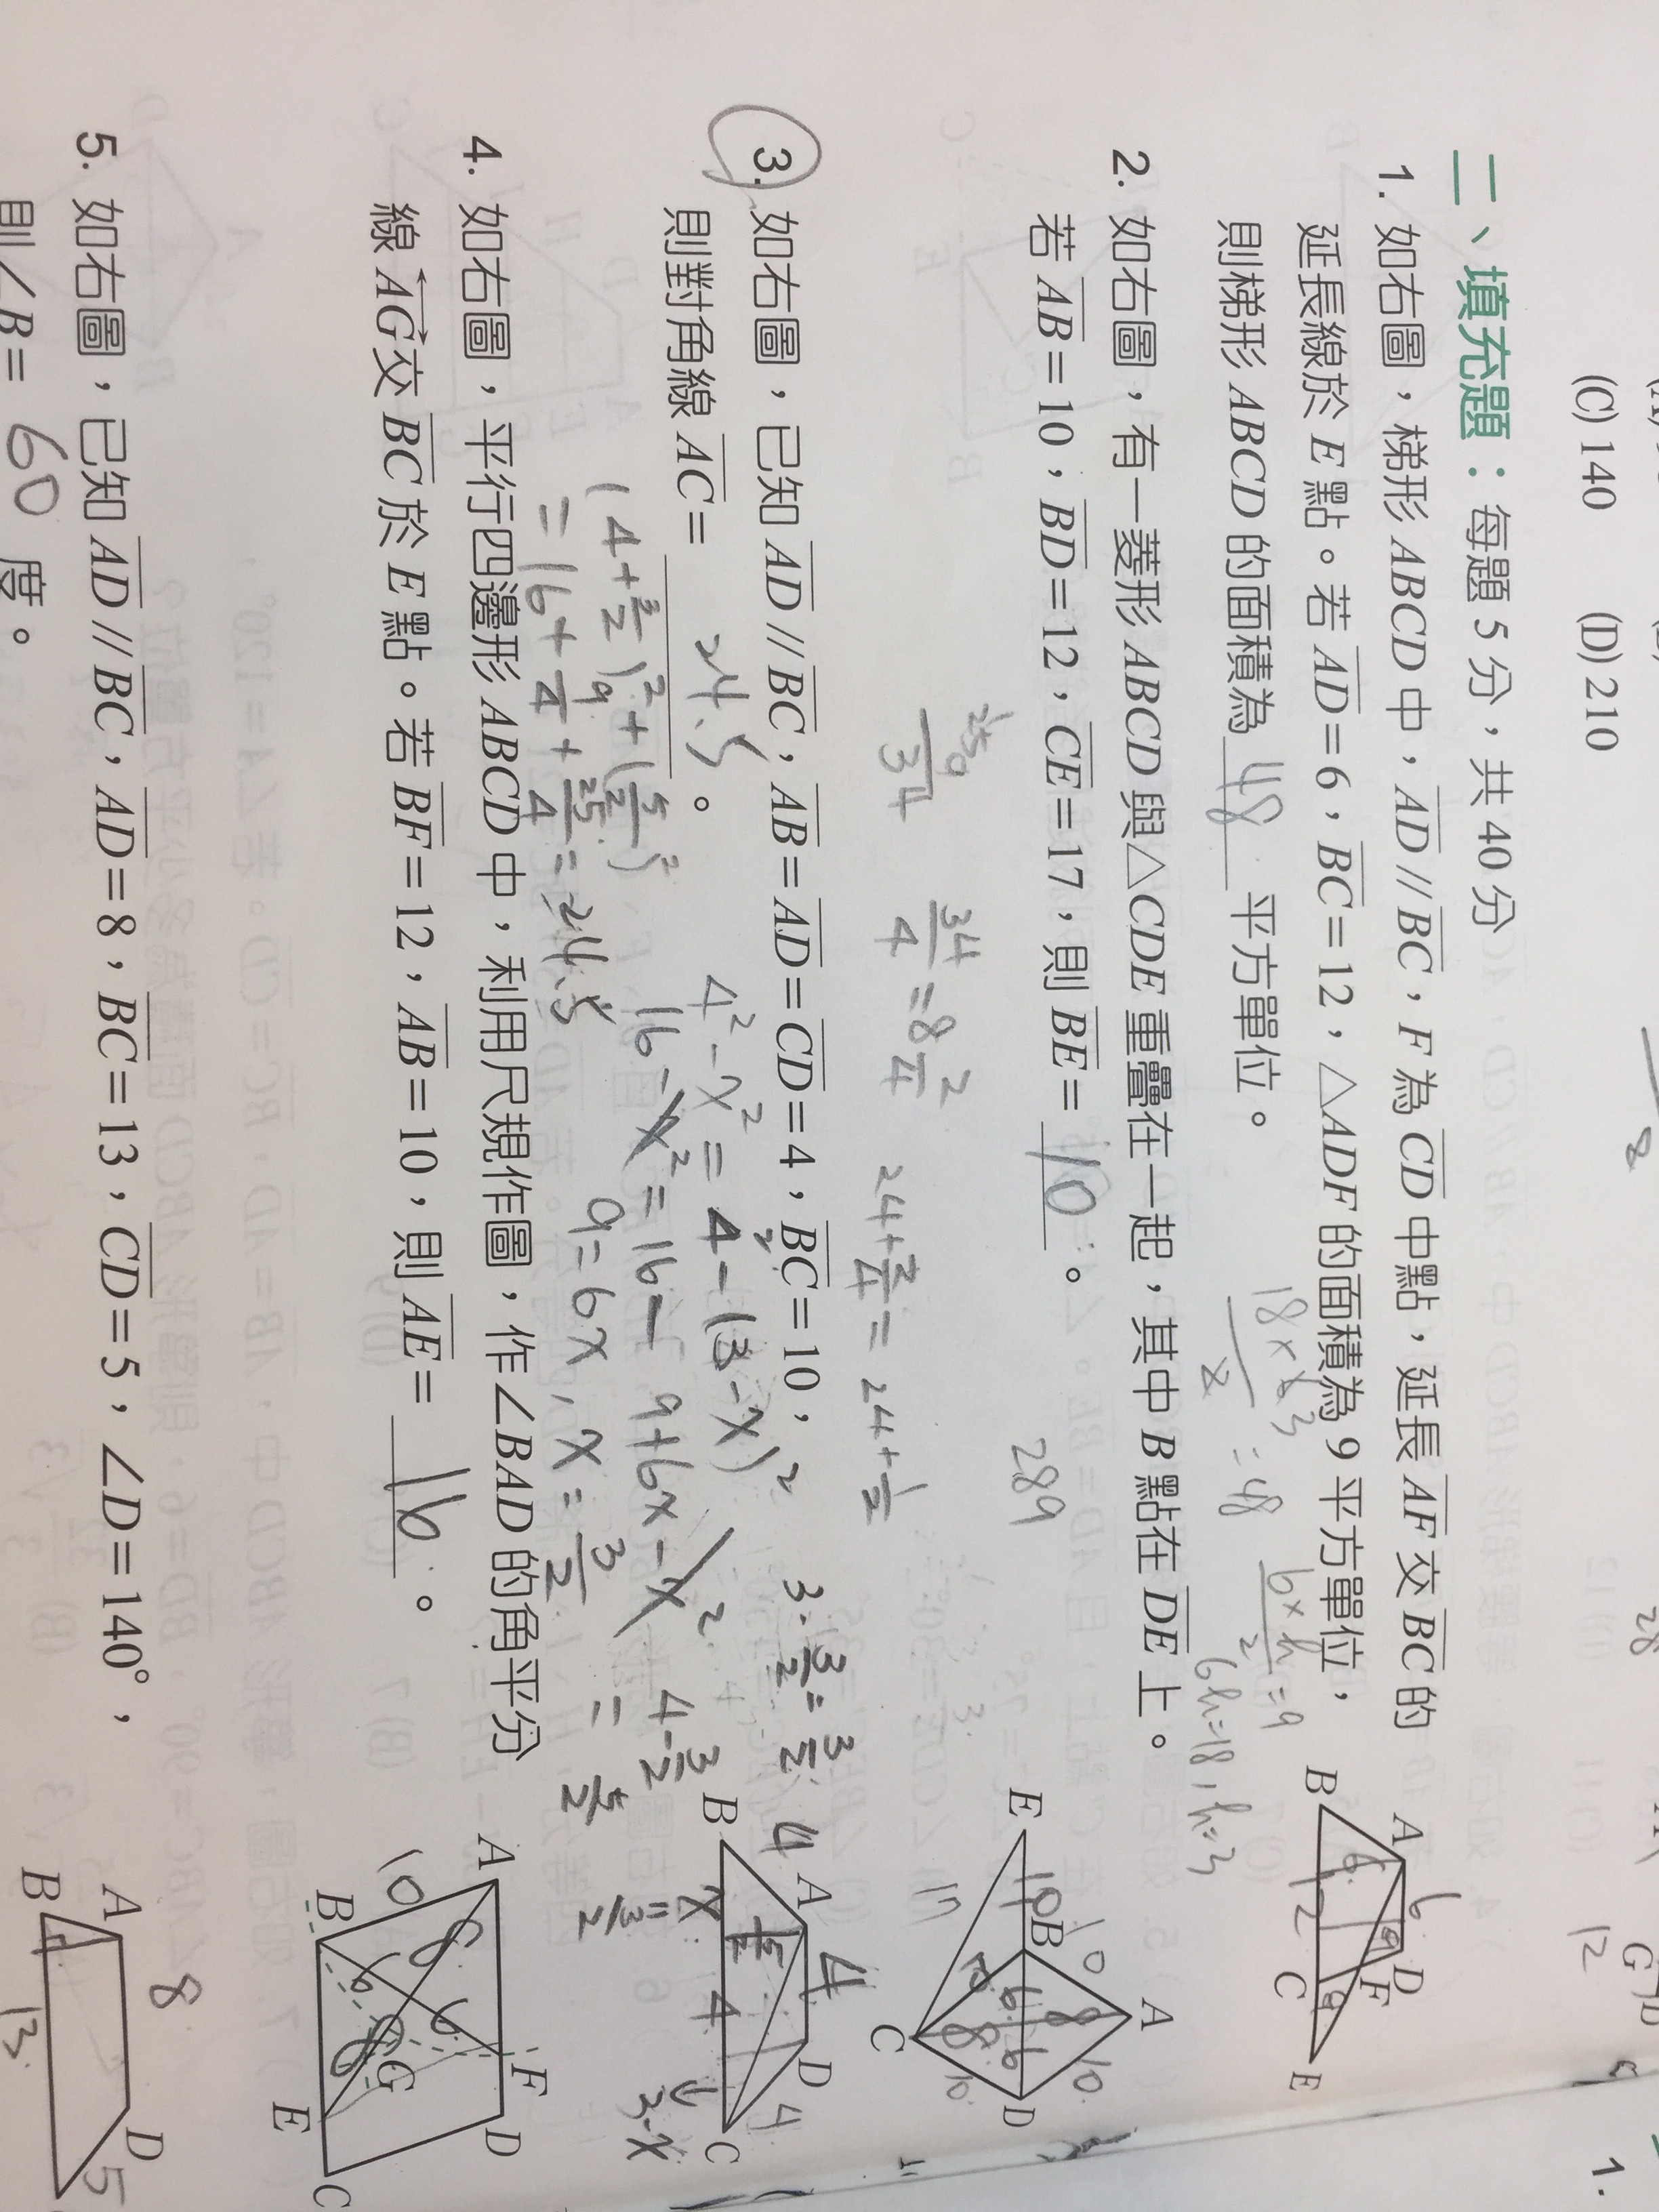 (C) 140　(D) 210
二、填充題：每題 5 分，共 40 分
1. 如右圖，梯形 ABCD 中，AD // BC，F 為 CD 中點，延長 AF 交 BC 的
延長線於 E 點。若 AD = 6，BC = 12，△ADF 的面積為 9 平方單位，
則梯形 ABCD 的面積為 48 平方單位。
= 48
= 9
6h=18, h=3
A 6 D
F
B 12 C E
2. 如右圖，有一菱形 ABCD 與△CDE 重疊在一起，其中 B 點在 DE 上。
若 AB = 10，BD = 12，CE = 17，則 BE = 10。
289
34/4 = 8 2/4
24 + 2/4 = 24 + 1/2
A
10 8 10
E 10 B 6 6 D
17 10 8 10
C
3. 如右圖，已知 AD // BC，AB = AD = CD = 4，BC = 10，
則對角線 AC = 24.5。
4² - x² = 4² - (3 - x)²
16 - x² = 16 - 9 + 6x - x²
9 = 6x, x = 3/2
(4 + 3/2)² + (5/2)²
= 16 + 9/4 + 25/4 = 24.5
3 - 3/2 = 3/2
4 - 3/2
= 5/2
4 A 4 D 4
B x 4 C
3-x
4. 如右圖，平行四邊形 ABCD 中，利用尺規作圖，作∠BAD 的角平分
線 AG 交 BC 於 E 點。若 BF = 12，AB = 10，則 AE = 16。
A F D
10 8 6
6 8 G
B E C
5. 如右圖，已知 AD // BC，AD = 8，BC = 13，CD = 5，∠D = 140°，
則∠B = 60 度。
8
A D
5
B 13
1.